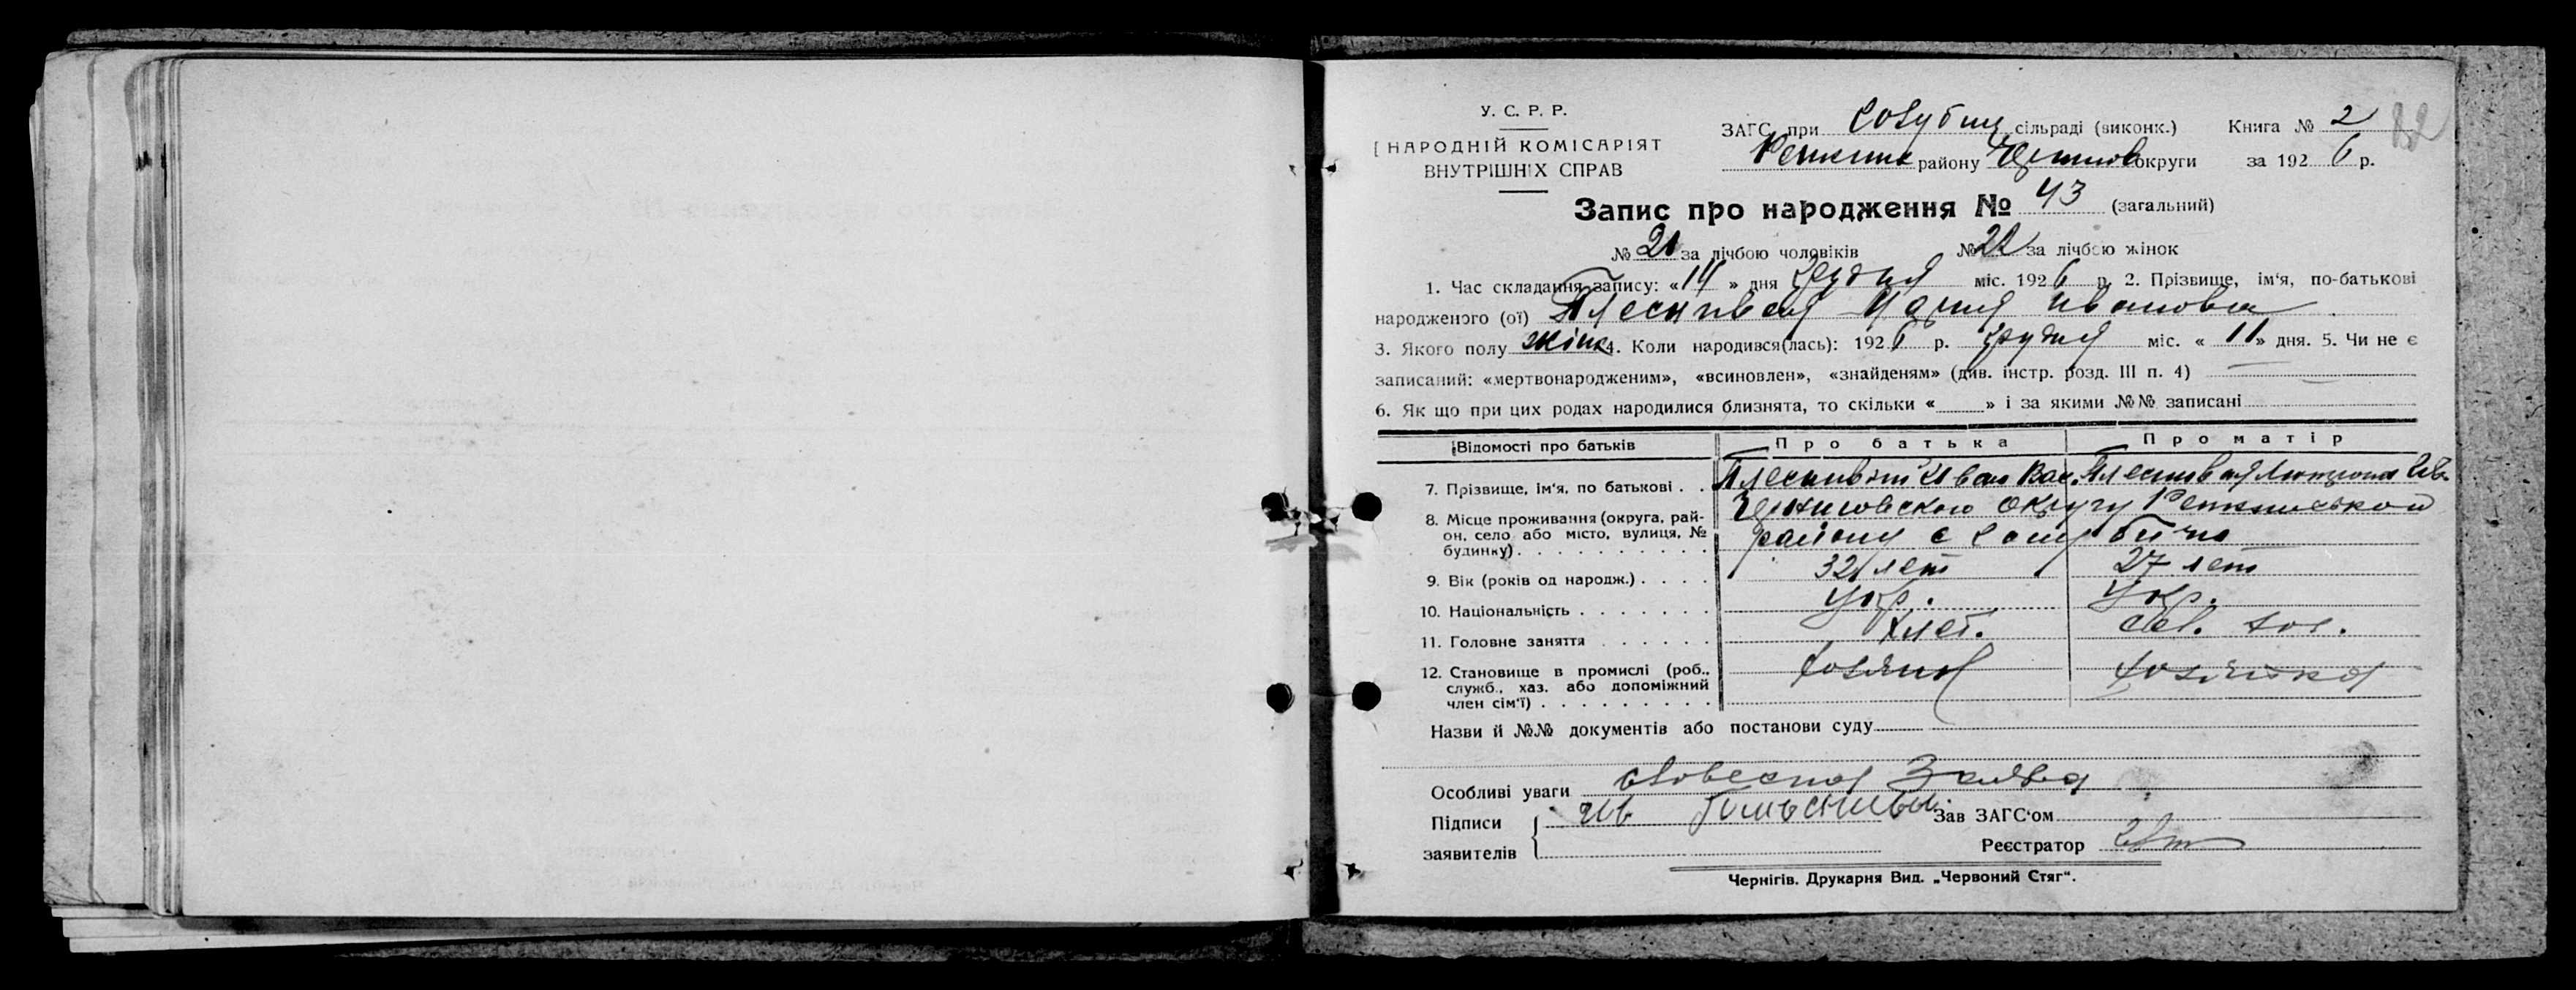 У. С. Р. Р.
НАРОДНІЙ КОМІСАРІЯТ
ВНУТРІШНІХ СПРАВ
ЗАГС при сільраді (виконк.) Книга № 2
району округи за 1926 р.
Запис про народження № 43 (загальний)
№ 21 за лічбою чоловіків № 22 за лічбою жінок
1. Час складання запису: «14» дня грудня міс. 1926 р. 2. Прізвище, ім‘я, по-батькові
народженого (ої) Плескивская Мария Ивановна
3. Якого полу жіноч 4. Коли народився(лась): 1926 р. грудня міс. «11» дня. 5. Чи не є
записаний: «мертвонародженим», «всиновлен», «знайденям» (див. інстр. розд. III п. 4)
6. Як що при цих родах народилися близнята, то скільки « » і за якими №№ записані
Відомості про батьків Про батька Про матір
7. Прізвище, ім‘я, по батькові . . Иван Вас.
8. Місце проживання (округа, рай-
он, село або місто, вулиця, №
будинку) . . . . . . . . . .
округу
району с
9. Вік (років од народж.) . . . . 32 лет 27 лет
10. Національність . . . . . . . Укр. Укр.
11. Головне заняття . . . . . . Хлеб.
12. Становище в промислі (роб.,
служб., хаз. або допоміжний
член сім‘ї) . . . . . . . . .
хозяин хозяйка
Назви й №№ документів або постанови суду
Особливі уваги словесная Заява
Підписи
заявителів
Зав ЗАГС‘ом
Реєстратор
Чернігів. Друкарня Вид. „Червоний Стяг“.